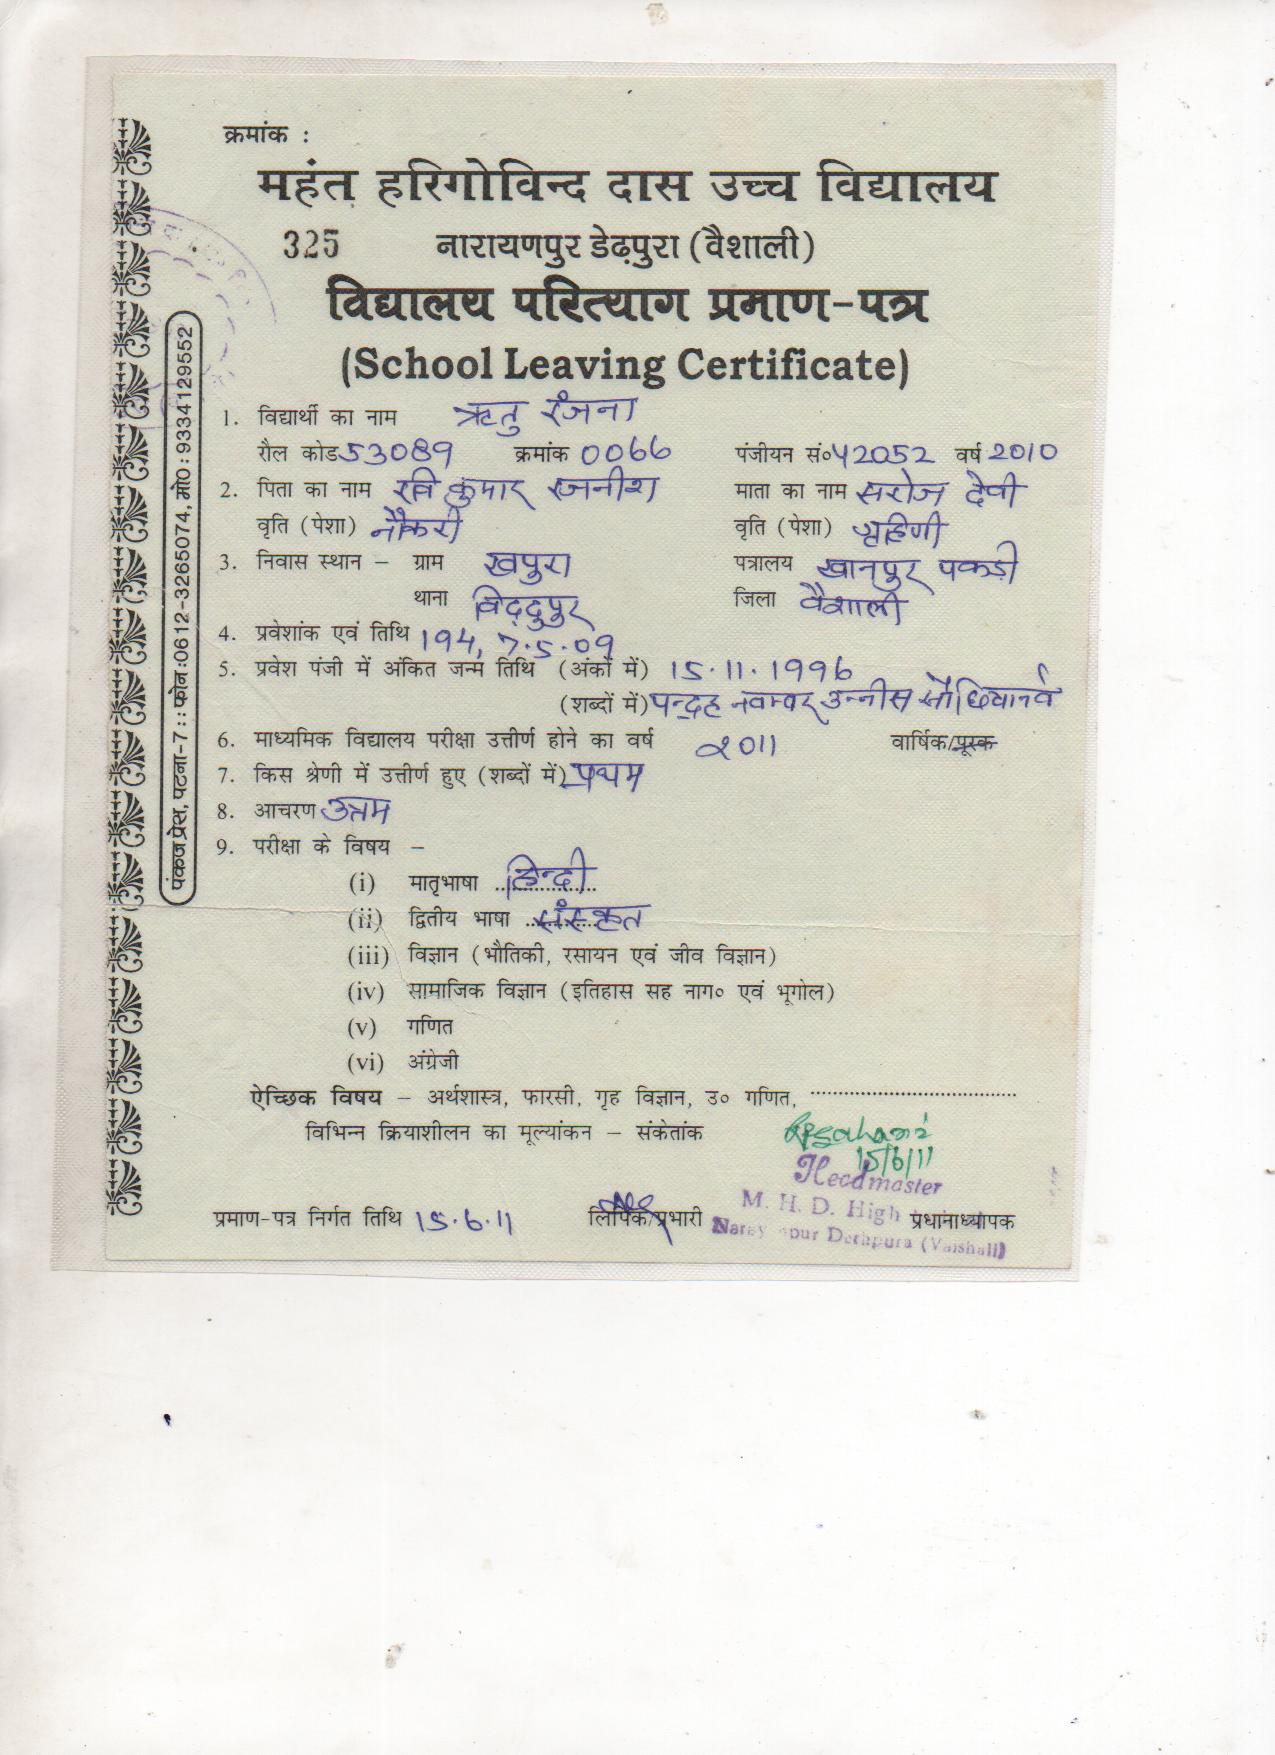 क्रमांक :
महंत हरिगोविन्द दास उच्च विद्यालय
325 नारायणपुर डेढ़पुरा (वैशाली)
विद्यालय परित्याग प्रमाण-पत्र
(School Leaving Certificate)
1. विद्यार्थी का नाम ऋतु रंजना
रौल कोड 53089 क्रमांक 0066 पंजीयन सं० 42052 वर्ष 2010
2. पिता का नाम रवि कुमार रजनीश माता का नाम सरोज देवी
वृति (पेशा) नौकरी वृति (पेशा) गृहिणी
3. निवास स्थान – ग्राम खपुरा पत्रालय खानपुर पकड़ी
थाना बिद्दुपुर जिला वैशाली
4. प्रवेशांक एवं तिथि 194, 7.5.09
5. प्रवेश पंजी में अंकित जन्म तिथि (अंकों में) 15.11.1996
(शब्दों में) पन्द्रह नवम्बर उन्नीस सौ छियानवे
6. माध्यमिक विद्यालय परीक्षा उत्तीर्ण होने का वर्ष 2011 वार्षिक/पूरक
7. किस श्रेणी में उत्तीर्ण हुए (शब्दों में) प्रथम
8. आचरण उत्तम
9. परीक्षा के विषय –
(i) मातृभाषा हिन्दी
(ii) द्वितीय भाषा संस्कृत
(iii) विज्ञान (भौतिकी, रसायन एवं जीव विज्ञान)
(iv) सामाजिक विज्ञान (इतिहास सह नाग० एवं भूगोल)
(v) गणित
(vi) अंग्रेजी
ऐच्छिक विषय – अर्थशास्त्र, फारसी, गृह विज्ञान, उ० गणित, ..................................
विभिन्न क्रियाशीलन का मूल्यांकन – संकेतांक
15/6/11
Headmaster
M. H. D. High
प्रमाण-पत्र निर्गत तिथि 15.6.11 लिपिक/प्रभारी प्रधानाध्यापक
Derhpura (Vaishali)
पंकज प्रेस, पटना-7 :: फोन :0612-3265074, मो० : 9334129552